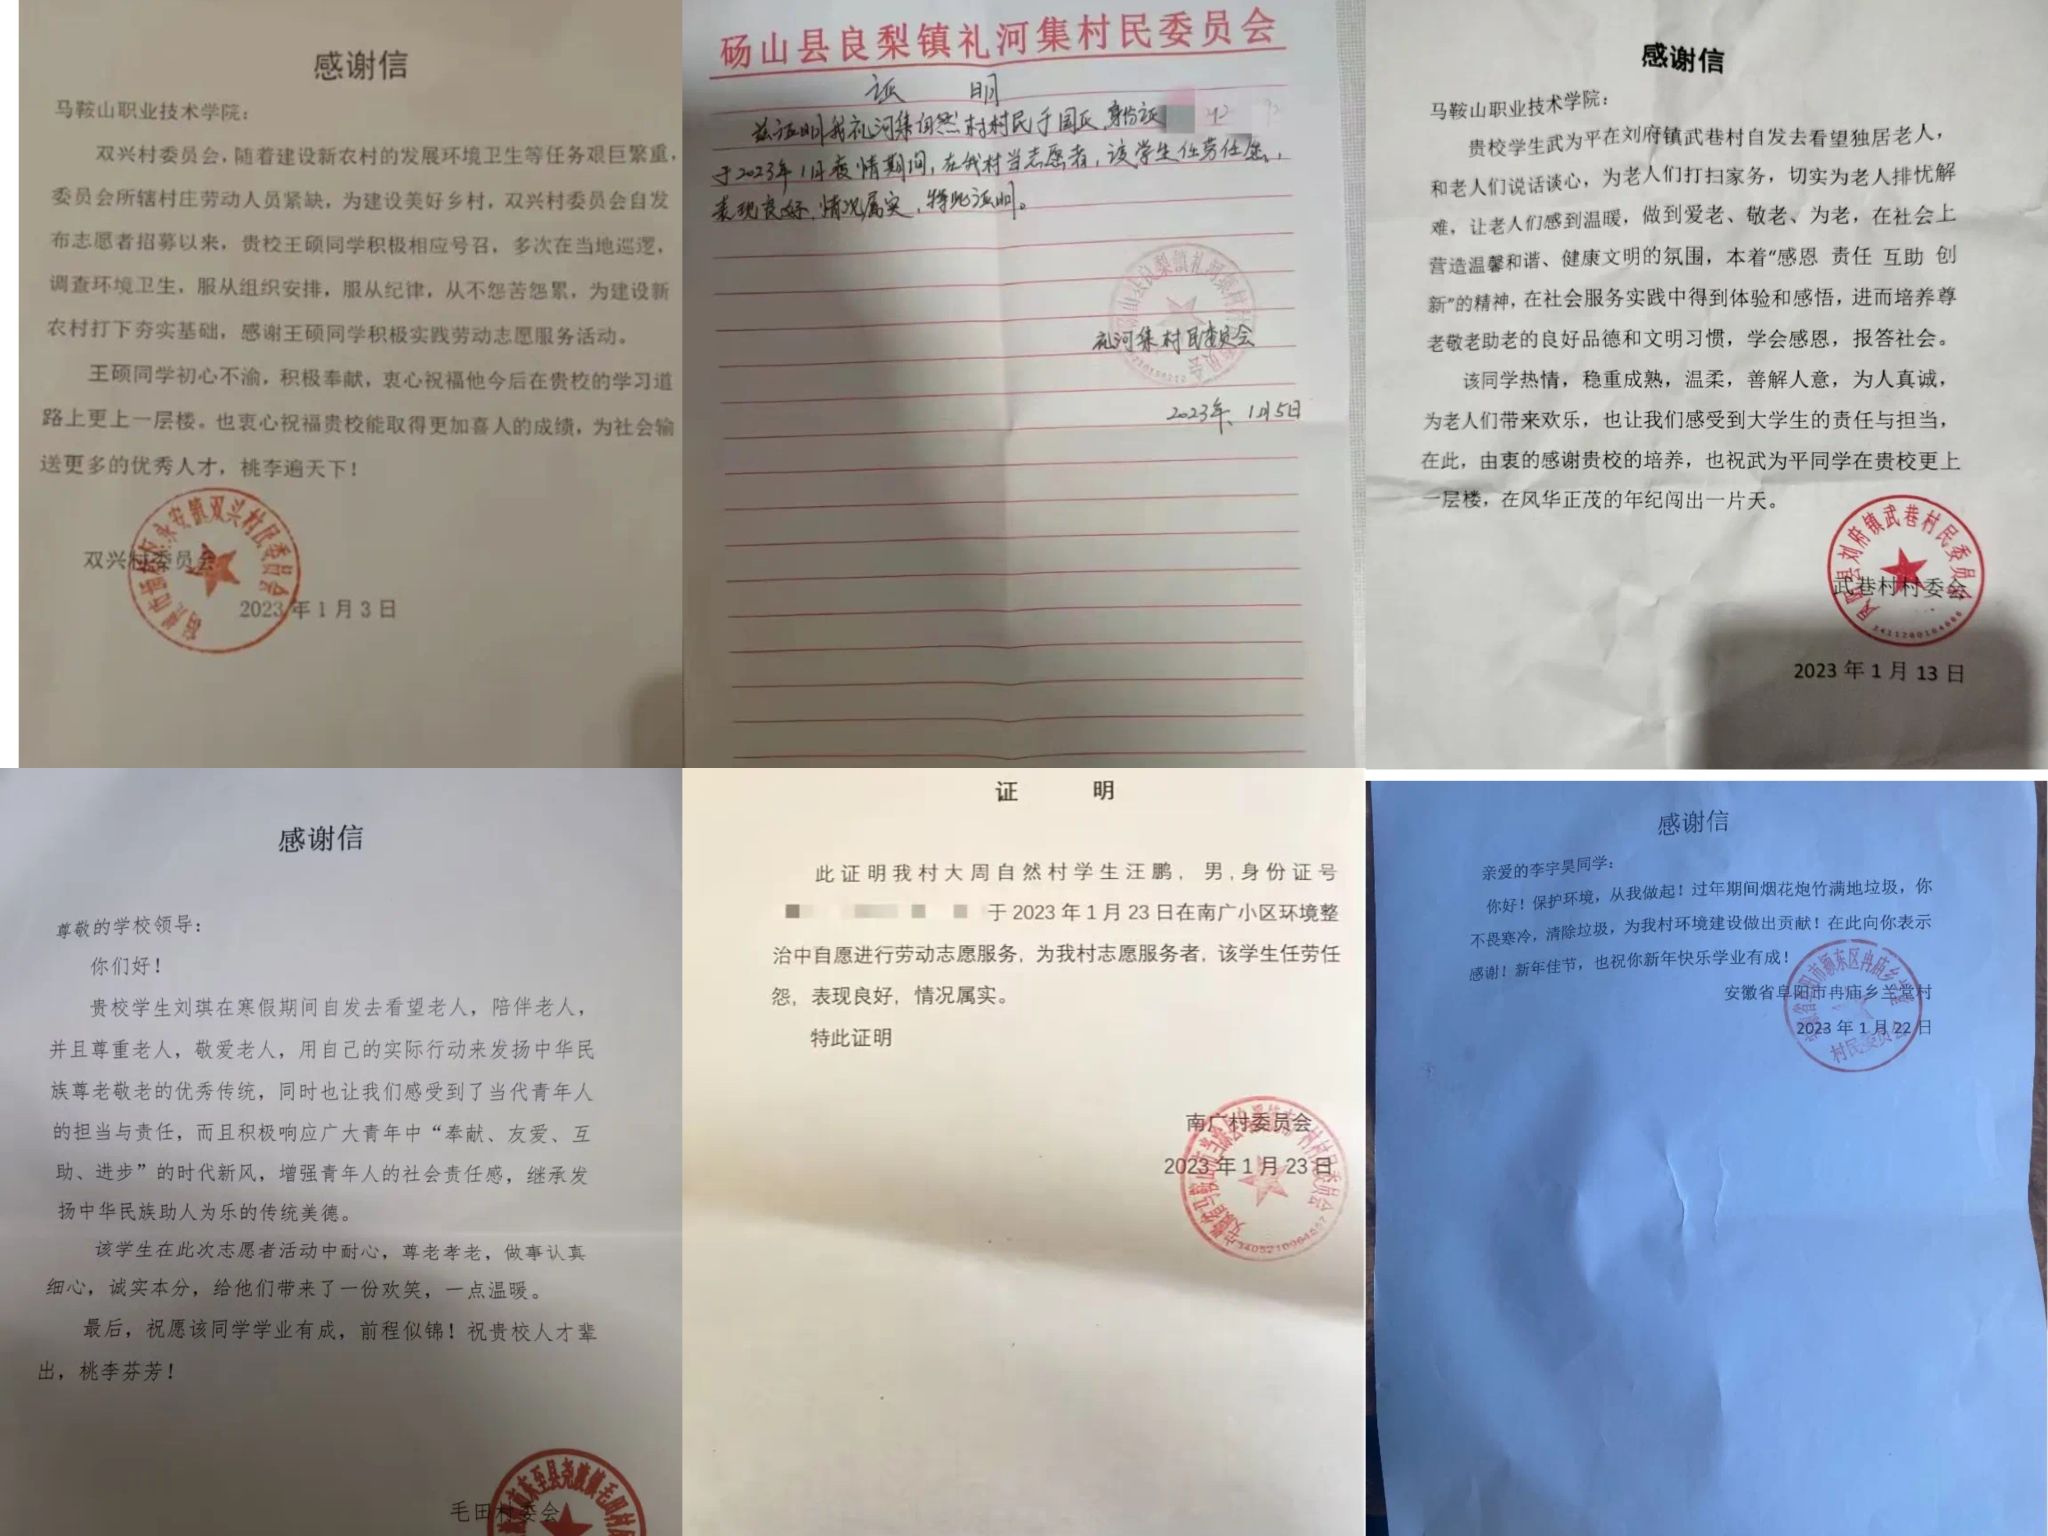 感谢信
马鞍山职业技术学院：
双兴村委员会，随着建设新农村的发展环境卫生等任务艰巨繁重，
委员会所辖村庄劳动人员紧缺，为建设美好乡村，双兴村委员会自发
布志愿者招募以来，贵校王硕同学积极相应号召，多次在当地巡逻，
调查环境卫生，服从组织安排，服从纪律，从不怨苦怨累，为建设新
农村打下夯实基础，感谢王硕同学积极实践劳动志愿服务活动。
王硕同学初心不渝，积极奉献，衷心祝福他今后在贵校的学习道
路上更上一层楼。也衷心祝福贵校能取得更加喜人的成绩，为社会输
送更多的优秀人才，桃李遍天下！
双兴村委员会
永安镇双兴村民委员会
2023年1月3日
砀山县良梨镇礼河集村民委员会
证 明
兹证明我礼河集自然村村民于国正，身份证
于2023年1月疫情期间，在我村当志愿者，该学生任劳任怨，
表现良好，情况属实，特此证明。
砀山县良梨镇礼河集村民委员会
礼河集村民委员会
2023年1月5日
感谢信
马鞍山职业技术学院：
贵校学生武为平在刘府镇武巷村自发去看望独居老人，
和老人们说话谈心，为老人们打扫家务，切实为老人排忧解
难，让老人们感到温暖，做到爱老、敬老、为老，在社会上
营造温馨和谐、健康文明的氛围，本着“感恩 责任 互助 创
新”的精神，在社会服务实践中得到体验和感悟，进而培养尊
老敬老助老的良好品德和文明习惯，学会感恩，报答社会。
该同学热情，稳重成熟，温柔，善解人意，为人真诚，
为老人们带来欢乐，也让我们感受到大学生的责任与担当，
在此，由衷的感谢贵校的培养，也祝武为平同学在贵校更上
一层楼，在风华正茂的年纪闯出一片天。
凤阳县刘府镇武巷村民委员会
武巷村村委会
2023年1月13日
感谢信
尊敬的学校领导：
你们好！
贵校学生刘琪在寒假期间自发去看望老人，陪伴老人，
并且尊重老人，敬爱老人，用自己的实际行动来发扬中华民
族尊老敬老的优秀传统，同时也让我们感受到了当代青年人
的担当与责任，而且积极响应广大青年中“奉献、友爱、互
助、进步”的时代新风，增强青年人的社会责任感，继承发
扬中华民族助人为乐的传统美德。
该学生在此次志愿者活动中耐心，尊老孝老，做事认真
细心，诚实本分，给他们带来了一份欢笑，一点温暖。
最后，祝愿该同学学业有成，前程似锦！祝贵校人才辈
出，桃李芬芳！
毛田村委会
东至县尧渡镇毛田村
证 明
此证明我村大周自然村学生汪鹏，男，身份证号
于2023年1月23日在南广小区环境整
治中自愿进行劳动志愿服务，为我村志愿服务者，该学生任劳任
怨，表现良好，情况属实。
特此证明
南广村委员会
2023年1月23日
感谢信
亲爱的李宇昊同学：
你好！保护环境，从我做起！过年期间烟花炮竹满地垃圾，你
不畏寒冷，清除垃圾，为我村环境建设做出贡献！在此向你表示
感谢！新年佳节，也祝你新年快乐学业有成！
安徽省阜阳市冉庙乡兰堂村
2023年1月22日
村民委员会